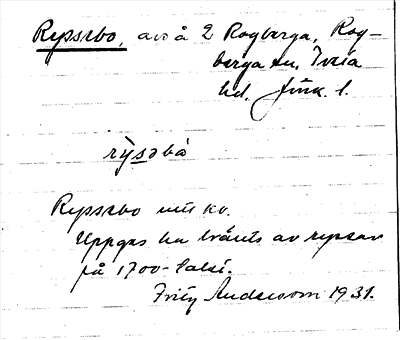 Ryssebo, avs å 2 Rogberga, Rog-
berga sn, Tveta
hd. Jönk. l.
rỳsəbò
Ryssebo utts kv.
Uppges ha bränts av ryssar
på 1700-talet.
Fritz Andersson 1931.